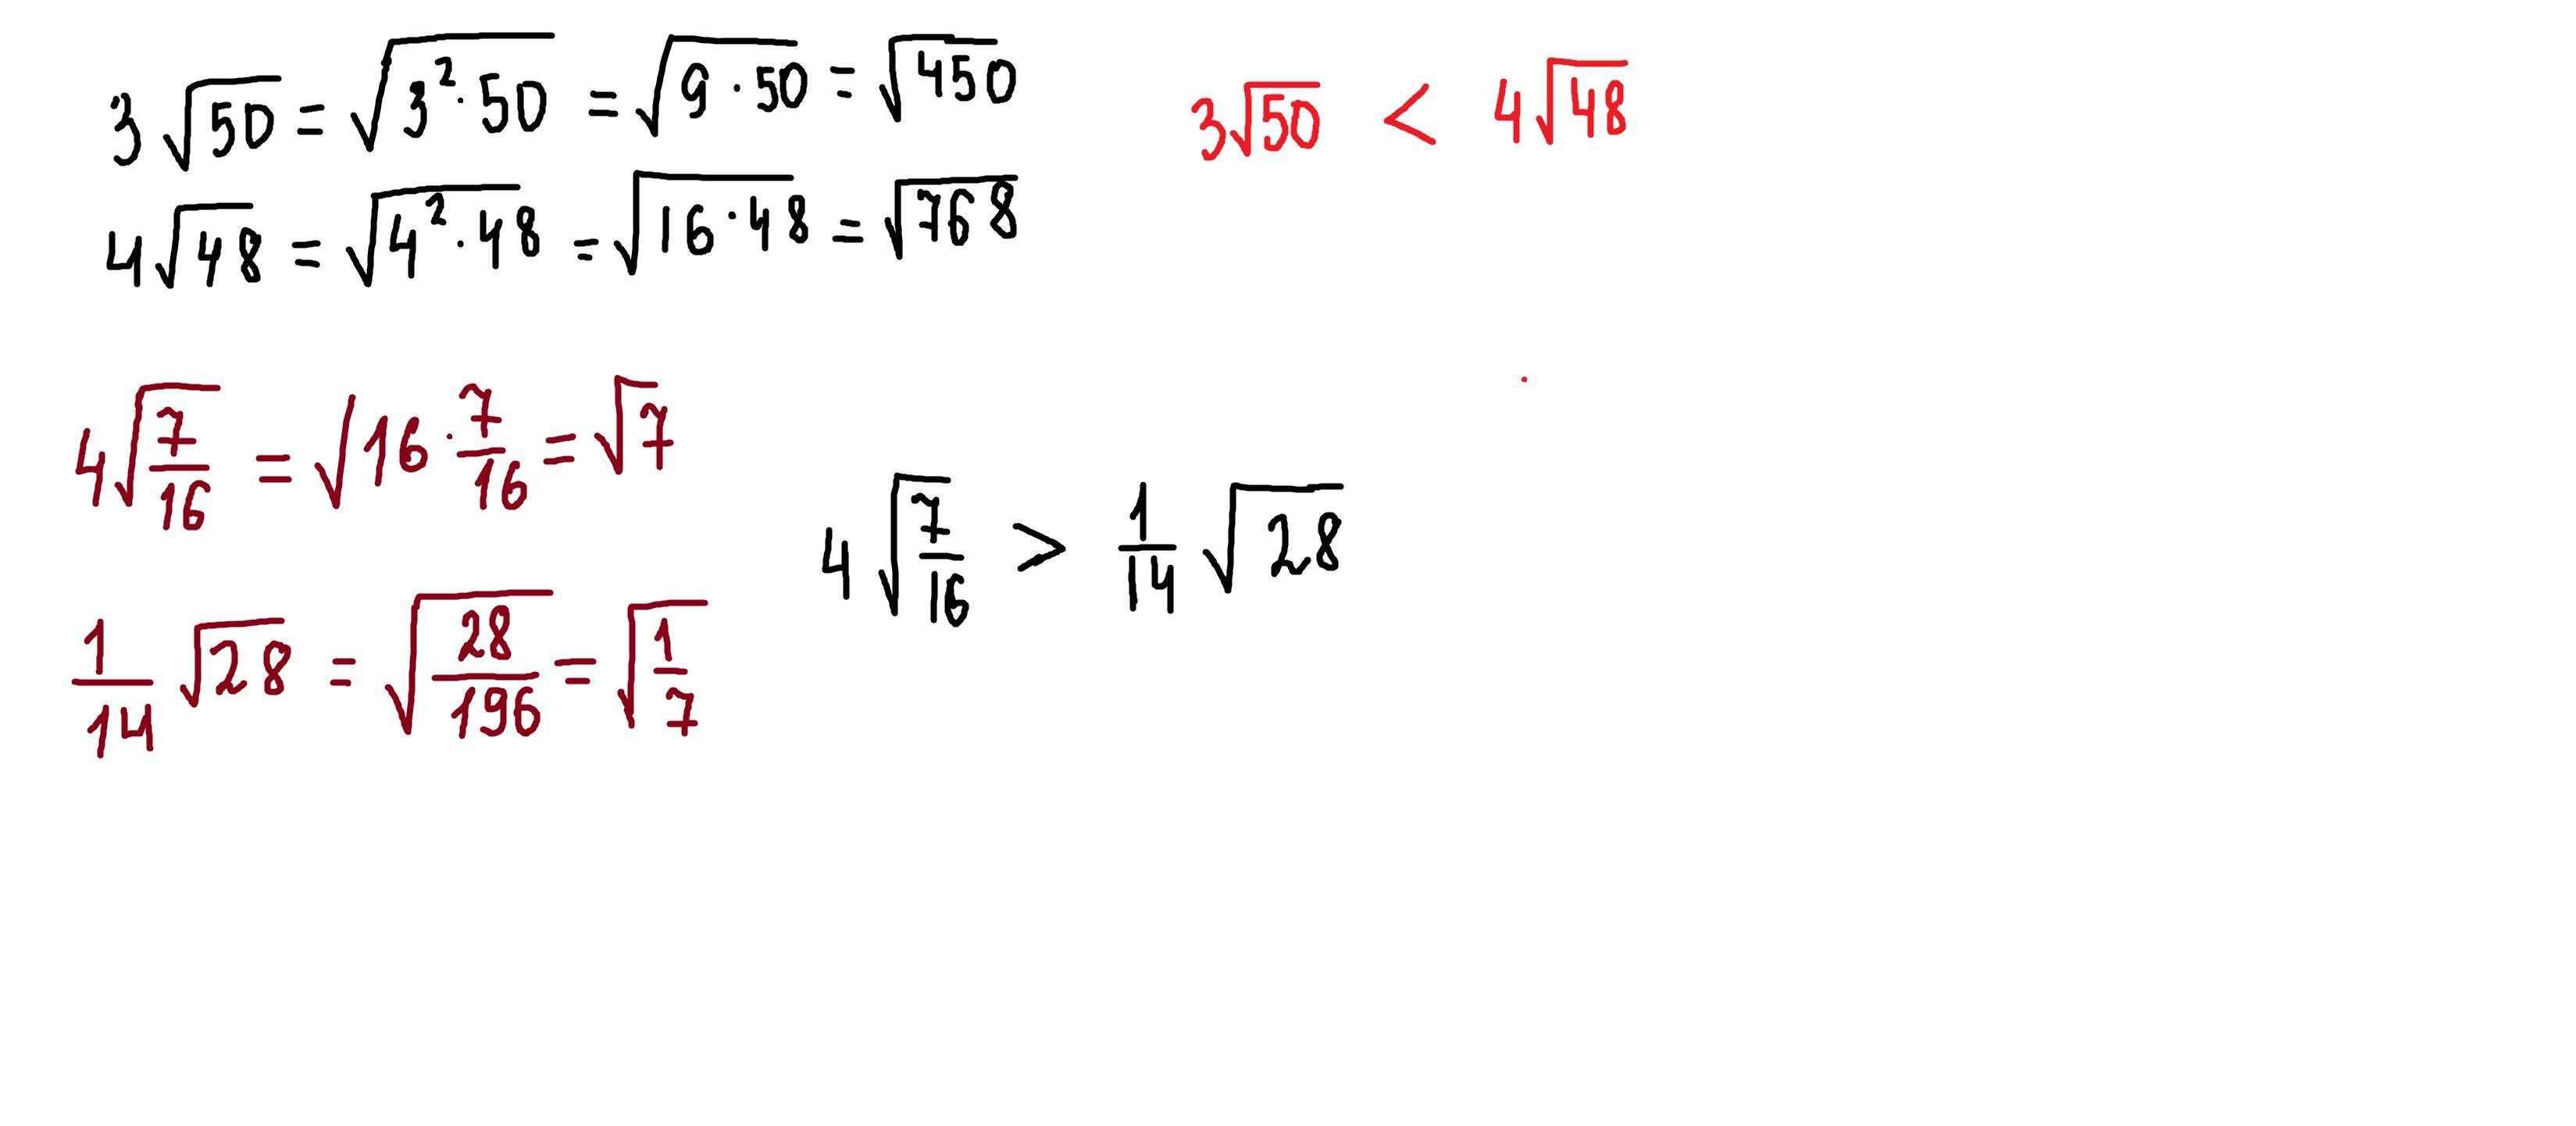 3√50 = √(3²·50) = √(9·50) = √450
3√50 < 4√48
4√48 = √(4²·48) = √(16·48) = √768
4√(7/16) = √(16·7/16) = √7
4√(7/16) > 1/14 √28
1/14 √28 = √(28/196) = √(1/7)